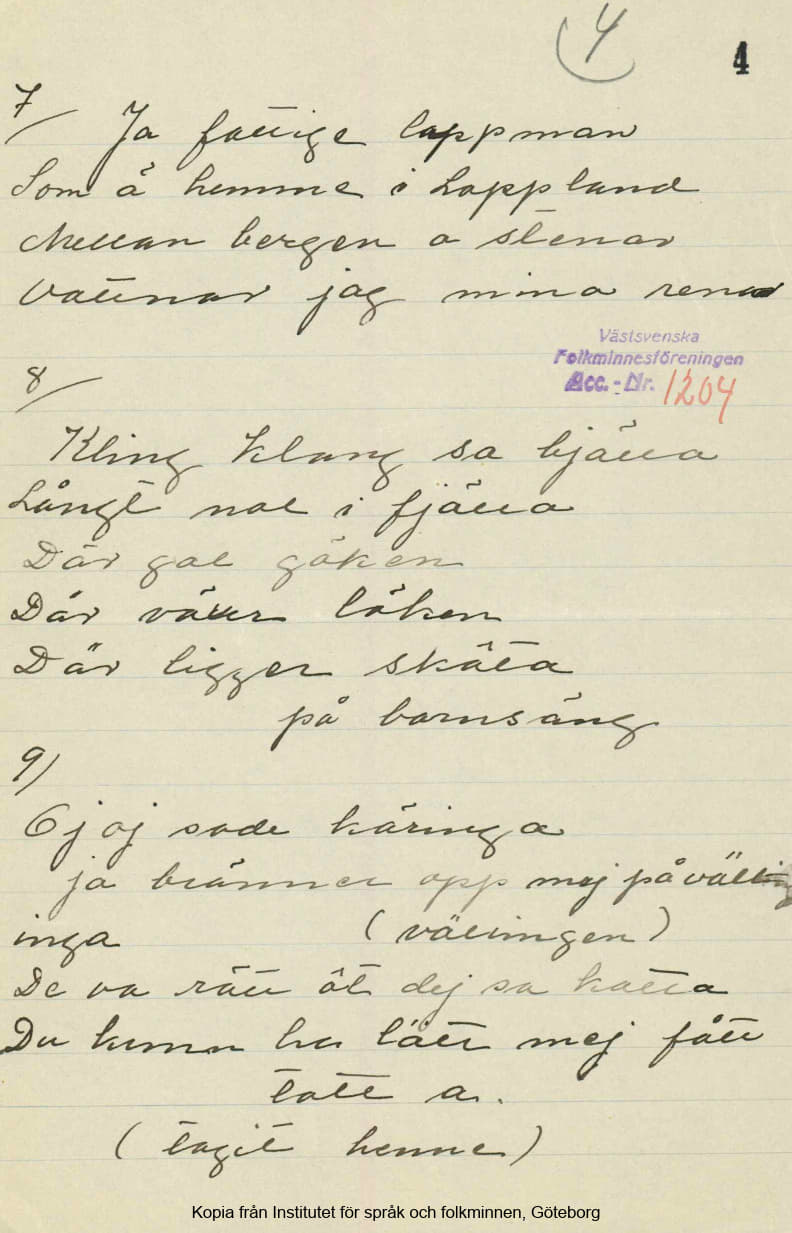 4
4
7/
Ja fattige lappman
Som å hemme i Lappland
Mellan bergen o stenar
Vattnar jag mina renar
Västsvenska
Folkminnesföreningen
Acc.-Nr. 1204
8/
Kling klang sa bjälla
Långt nol i fjälla
Där gol göken
Där växer löken
Där ligger skäta
på barnsäng
9/
Oj oj sade käringa
ja bränner opp mej på välling
inga (vällingen)
De va rätt åt dej sa katta
Du kunn ha lätt mej fått
tatt a.
(tagit henne)
Kopia från Institutet för språk och folkminnen, Göteborg